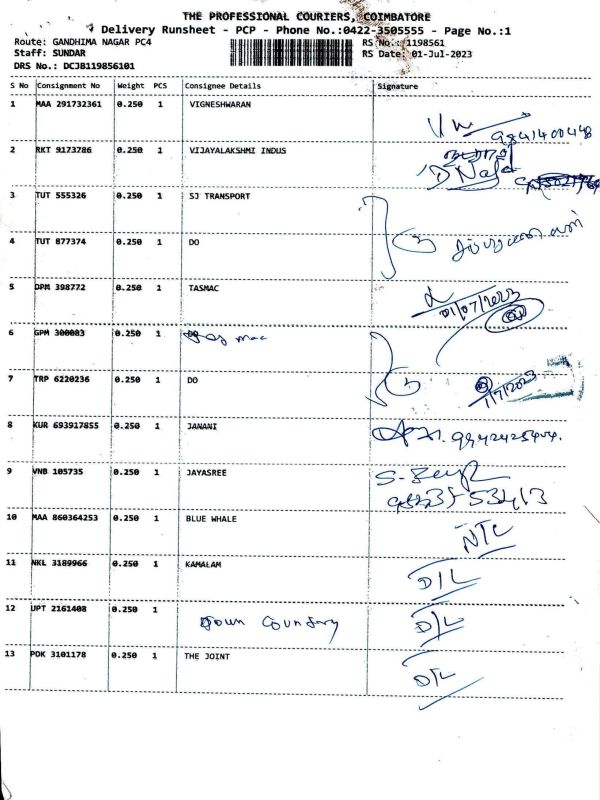 THE PROFESSIONAL COURIERS, COIMBATORE
Delivery Runsheet - PCP - Phone No.:0422-3505555 - Page No.:1
Route: GANDHIMA NAGAR PC4
RS No.: 1198561
Staff: SUNDAR
RS Date: 01-Jul-2023
DRS No.: DCJB119856101
S No Consignment No Weight PCS Consignee Details Signature
1 MAA 291732361 0.250 1 VIGNESHWARAN
9841400448
2 RKT 9173786 0.250 1 VIJAYALAKSHMI INDUS
3 TUT 555326 0.250 1 SJ TRANSPORT
4 TUT 877374 0.250 1 DO
5 DPM 398772 0.250 1 TASMAC
01/07/2023
6 GPM 300083 0.250 1 mac
7 TRP 6220236 0.250 1 DO
1/7/2023
8 KUR 693917855 0.250 1 JANANI
9 VNB 105735 0.250 1 JAYASREE
10 MAA 860364253 0.250 1 BLUE WHALE NTC
11 NKL 3189966 0.250 1 KAMALAM D/L
12 UPT 2161408 0.250 1 Town Coundary D/L
13 PDK 3101178 0.250 1 THE JOINT D/L